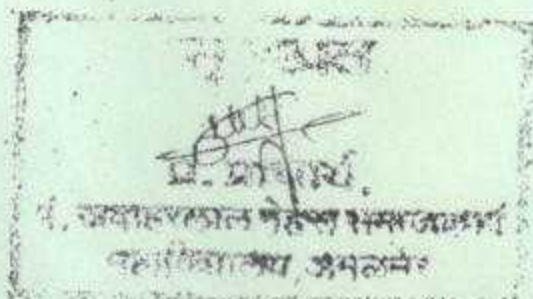 प्र. प्राचार्य,
पं. जवाहरलाल नेहरू समाजकार्य
महाविद्यालय, अमळनेर